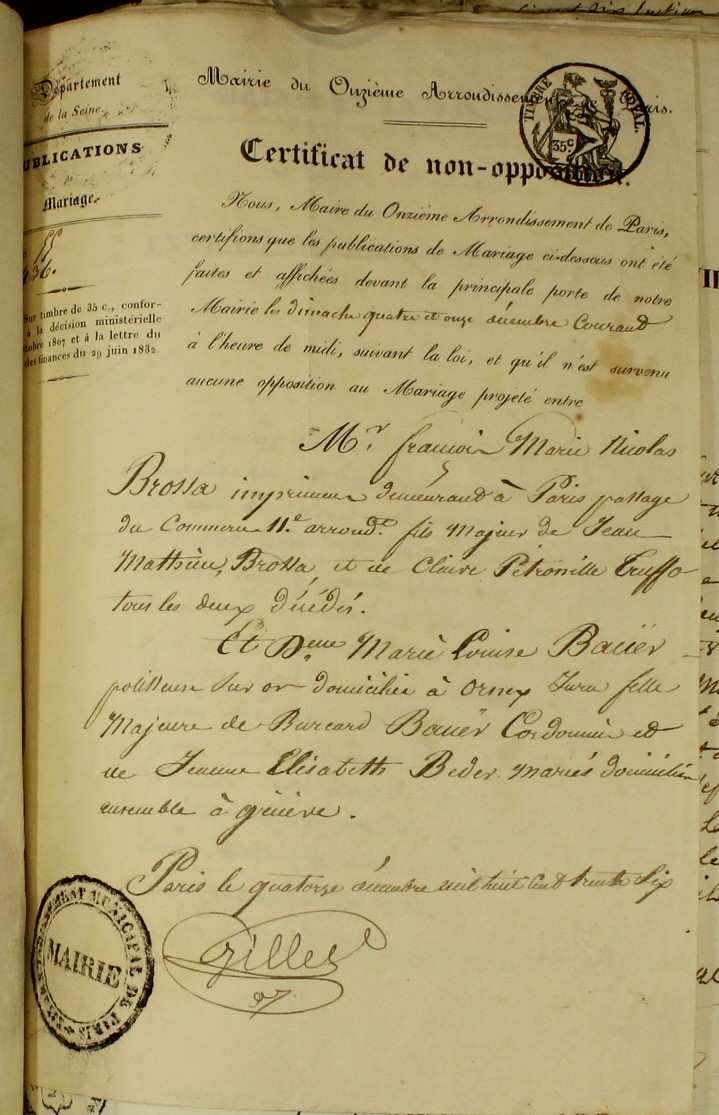 Département
de la Seine.
PUBLICATIONS
de
Mariage.
436.
Sur timbre de 35 c., confor-
à la décision ministérielle
octobre 1807 et à la lettre du
des finances du 29 juin 1832.
Mairie du Onzième Arrondissement Paris.
TIMBRE ROYAL.
35c
Certificat de non-opposition.
Nous, Maire du Onzième Arrondissement de Paris,
certifions que les publications de Mariage ci-dessous ont été
faites et affichées devant la principale porte de notre
Mairie les dimache quatre et onze décembre Courand
à l'heure de midi, suivant la loi, et qu'il n'est survenu
aucune opposition au Mariage projeté entre
Mr. françois Marie Nicolas
Brossa imprimeur demeurand à Paris passage
du Commerce 11e. arrondt. fils Majeur de Jean
Mathieu, Brossa, et de Claire Pétronille Truffo
tous les deux décédés.
Et Delle Marie Louise Baüer
polisseuse sur or domiciliée à Ornex Jura fille
Majeure de Burcard Baüer Cordonnier et
de Jeanne Elisabeth Beder mariés domiciliés
ensemble à génève.
Paris le quatorze décembre mil huit Cent trente Six
Gilles
MAIRIE
MUNICIPAL DE PARIS